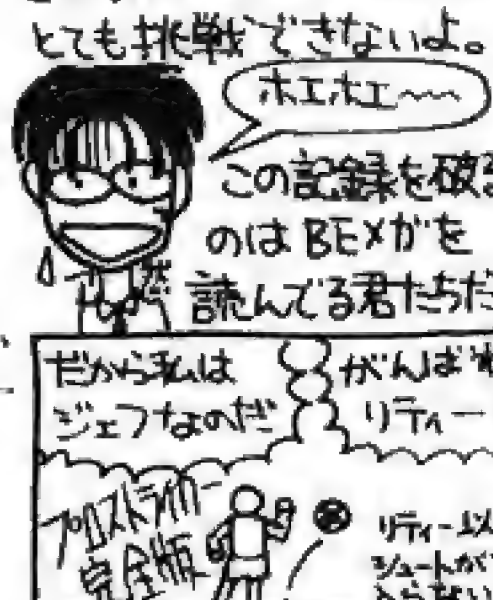 とても挑戦できないよ。
ホエホエ～～
この記録を破る
のはBEメガを
読んでる君たちだ
だから私は
ジェフなのだ
がんばれ
リティー
プロストライカー
完全版
リティー以
シュートが